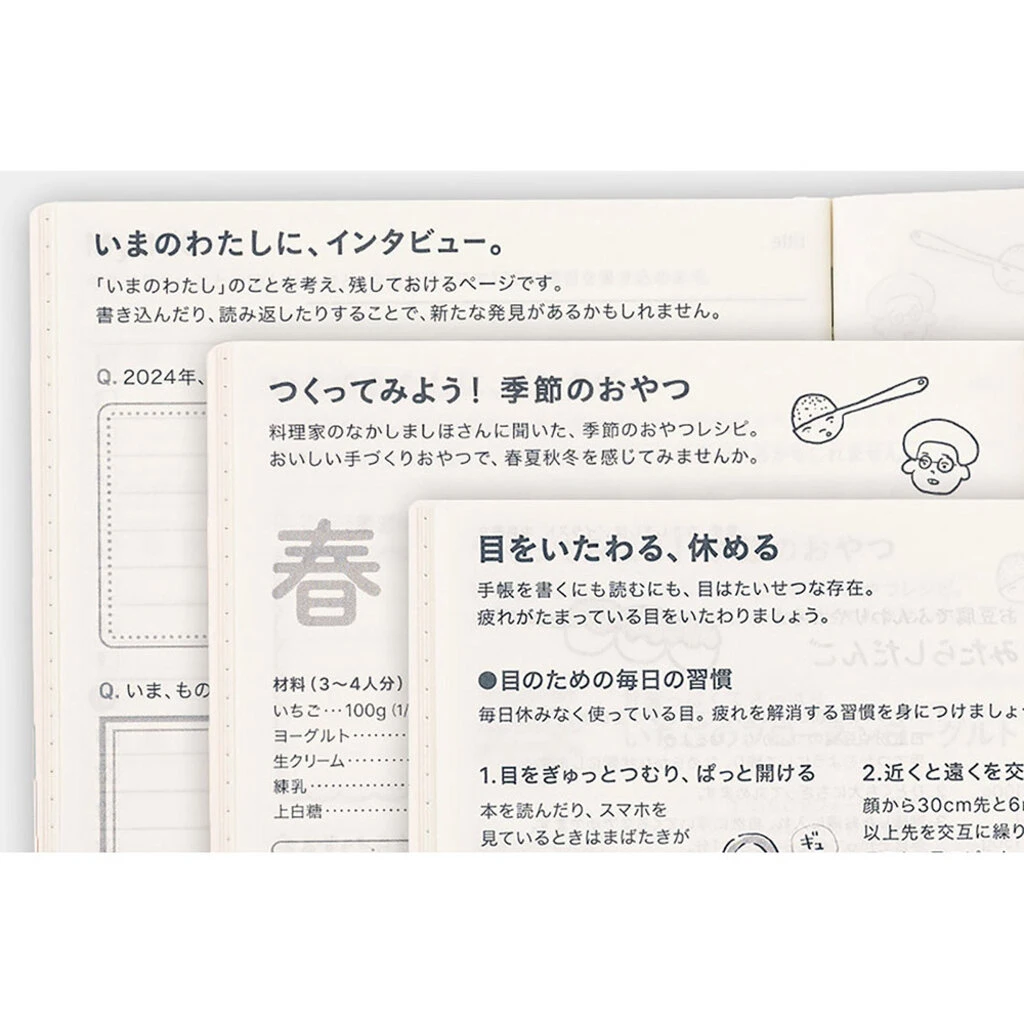 いまのわたしに、インタビュー。
「いまのわたし」のことを考え、残しておけるページです。
書き込んだり、読み返したりすることで、新たな発見があるかもしれません。
Q. 2024年、
Q. いま、もの
つくってみよう! 季節のおやつ
料理家のなかしましほさんに聞いた、季節のおやつレシピ。
おいしい手づくりおやつで、春夏秋冬を感じてみませんか。
春
材料(3〜4人分)
いちご…100g(1/
ヨーグルト……
生クリーム……
練乳……
上白糖……
目をいたわる、休める
手帳を書くにも読むにも、目はたいせつな存在。
疲れがたまっている目をいたわりましょう。
●目のための毎日の習慣
毎日休みなく使っている目。疲れを解消する習慣を身につけましょ
1.目をぎゅっとつむり、ぱっと開ける
本を読んだり、スマホを
見ているときはまばたきが
ギュ
2.近くと遠くを交
顔から30cm先と6
以上先を交互に繰り